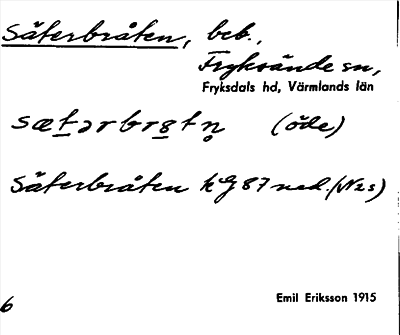 Säterbråten, beb.,
Fryksände sn,
Fryksdals hd, Värmlands län
sætərbrgtn̥ (öde)
Säterbråten
Emil Eriksson 1915
6